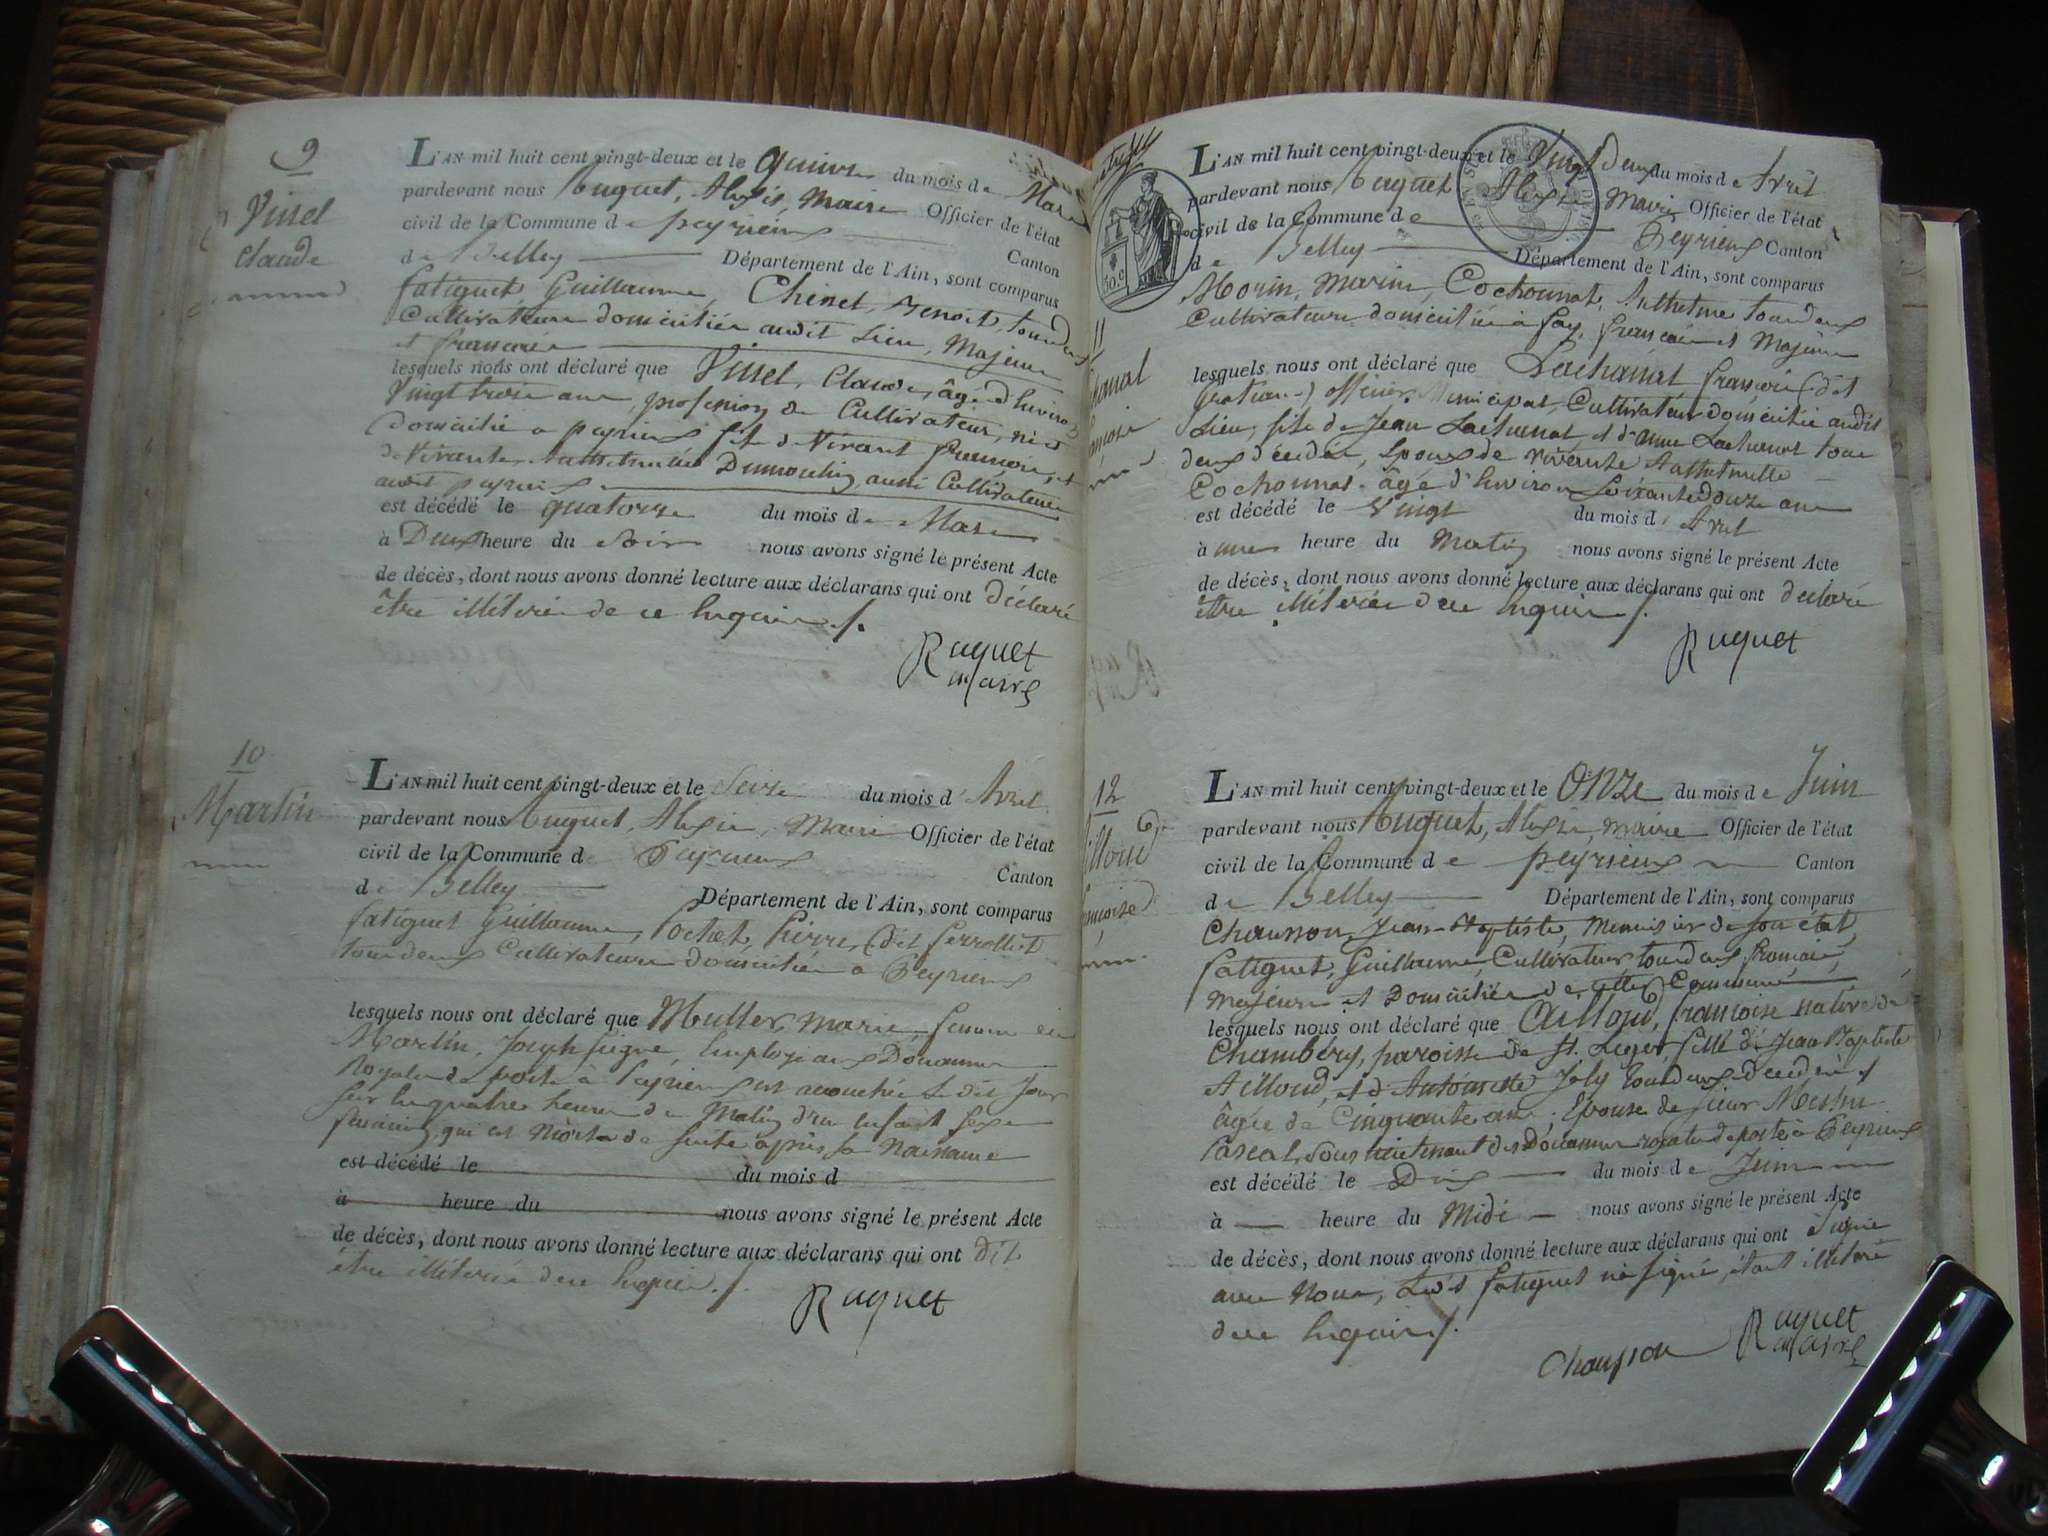 9
Vissel
Claude
L'AN mil huit cent vingt-deux et le quinze du mois de Mars
pardevant nous Ruquet, Alexis, Maire Officier de l'état
civil de la Commune de peyrieux Canton
de Belley Département de l'Ain, sont comparus
fatiguet Guillaume, Chenet, Benoit, tous deux
Cultivateurs domiciliés audit Lieu, Majeurs
et français
lesquels nous ont déclaré que Vissel, Claude, âgé d'environ
Vingt trois ans, profession de Cultivateur, né et
domicilié a peyrieux fils de Vivant françois, et
de Vivante Dumoulin, aussi Cultivateurs
audit peyrieux
est décédé le quatorze du mois de Mars
à Deux heure du Soir nous avons signé le présent Acte
de décès, dont nous avons donné lecture aux déclarans qui ont déclaré
être illiterés de ce Enquis ./.
Ruquet
maire
10
Martin
L'AN mil huit cent vingt-deux et le Seize du mois d'Avril
pardevant nous Ruquet, Alexis, Maire Officier de l'état
civil de la Commune de Peyrieux Canton
de Belley Département de l'Ain, sont comparus
fatiguet Guillaume, Pochet, Pierre, (dit Perrollet
tous deux Cultivateurs domiciliés a Peyrieux
lesquels nous ont déclaré que Muller, Marie, femme de
Martin, Joseph Employé aux Douannes
Royales de poste à Peyrieux est accouchée Le dit Jour
sur les quatre heures du Matin d'un Enfant Sexe
feminin, qui est Morte de suite après sa Naissance
est décédé le du mois d
à heure du nous avons signé le présent Acte
de décès, dont nous avons donné lecture aux déclarans qui ont dit
être illiterés de ce Enquis ./.
Ruquet
30 c.
11
L'AN mil huit cent vingt-deux et le Vingt Deux du mois de Avril
pardevant nous Ruquet Alexis Maire Officier de l'état
civil de la Commune de Peyrieux Canton
de Belley Département de l'Ain, sont comparus
Morin, Marin, Cochonat, Anthelme tous deux
Cultivateurs domiciliés à fay, français et Majeurs
lesquels nous ont déclaré que Lachanal françois (dit
gratian) officier Municipal, Cultivateur domicilié audit
Lieu, fils de Jean Lachanal, et d'Anne Lachanal tous
deux décédés, Epoux de vivante Anthelmette
Cochonat âgé d'Environ Soixante douze ans
est décédé le Vingt du mois d'Avril
à une heure du Matin nous avons signé le présent Acte
de décès, dont nous avons donné lecture aux déclarans qui ont déclaré
être illiterés de ce Enquis ./.
Ruquet
12
L'AN mil huit cent vingt-deux et le Onze du mois de Juin
pardevant nous Ruquet, Alexis, maire Officier de l'état
civil de la Commune de peyrieux Canton
de Belley Département de l'Ain, sont comparus
Chausson, Jean-Baptiste, Menuisier de Son état,
fatiguet, Guillaume, Cultivateur tous deux français,
Majeurs et Domiciliés de cette Commune
lesquels nous ont déclaré que Ailloud, françoise native de
Chambéry, paroisse de St. Leger, fille de Jean Baptiste
Ailloud, et d'Antoinette Joly tous deux décédés
âgée de Cinquante ans, Epouse de Sieur
Pascal, Sous lieutenant des Douannes royales de poste à Peyrieux
est décédé le Dix du mois de Juin
à heure du Midi nous avons signé le présent Acte
de décès, dont nous avons donné lecture aux déclarans qui ont Signé
avec Nous, Led't fatiguet n'a signé, étant illiteré
de ce Enquis ./.
Chausson Ruquet
maire